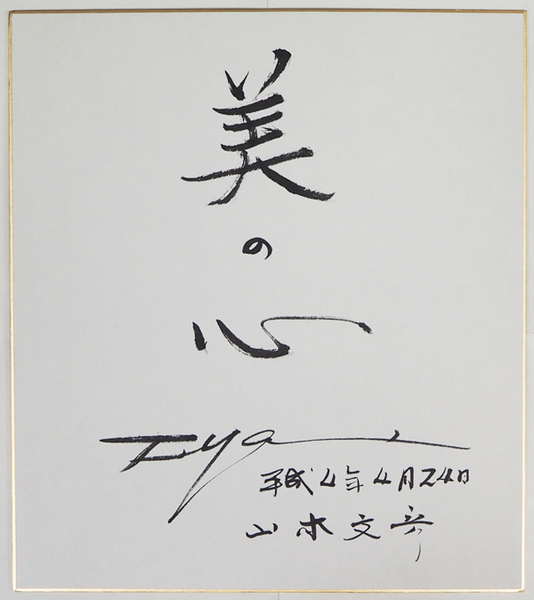 美
の
心
平成4年4月24日
山木文彦